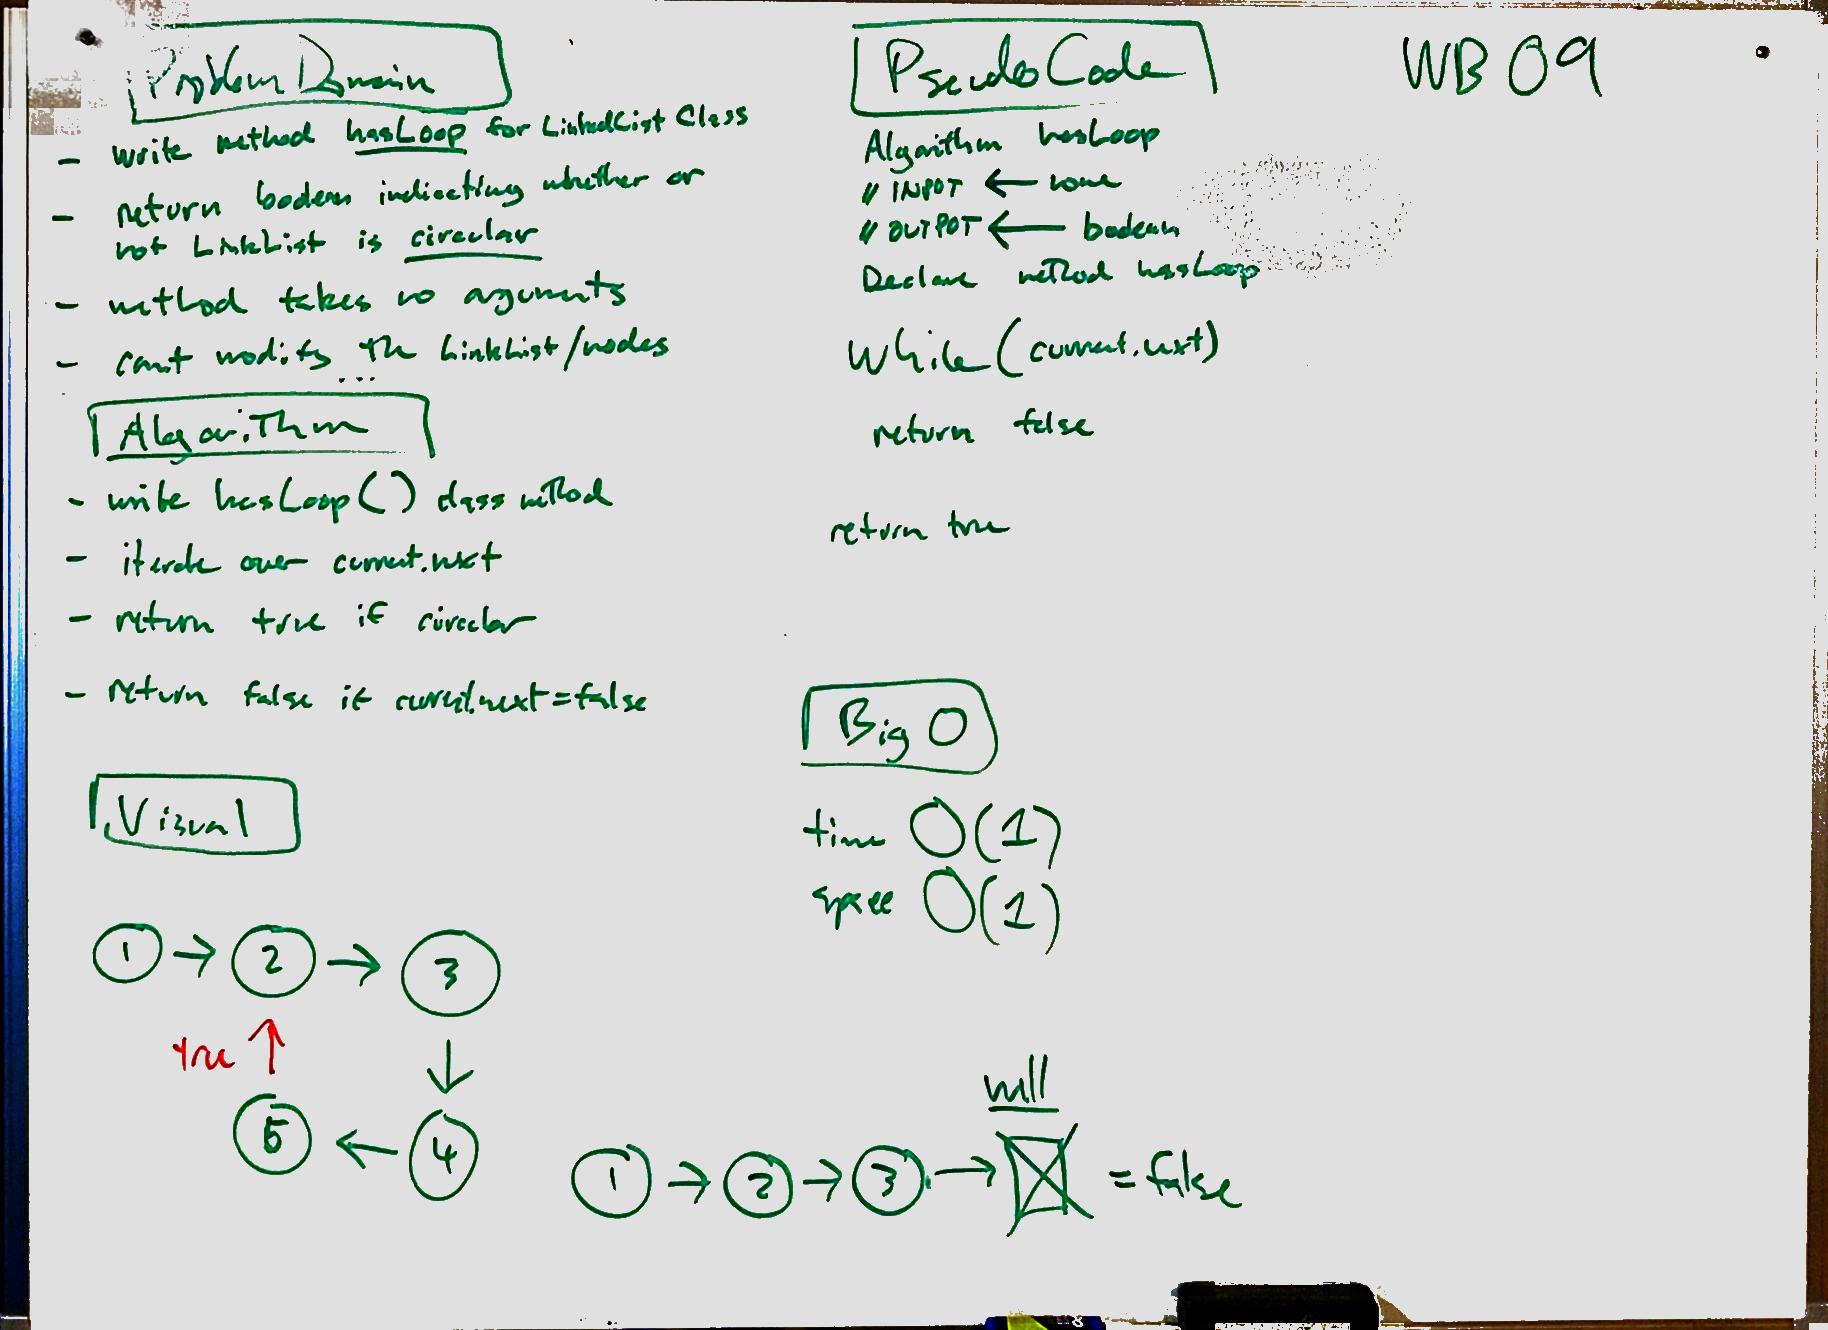 Problem Domain
- write method hasLoop for LinkedList Class
- return boolean indicating whether or
not LinkList is circular
- method takes no arguments
- can't modify the LinkList/nodes
...
Algorithm
- write hasLoop() class method
- iterate over current.next
- return true if circular
- return false if current.next = false
Visual
1 → 2 → 3
true ↑ ↓
5 ← 4
Pseudo Code
Algorithm hasLoop
// INPUT ← none
// OUTPUT ← boolean
Declare method hasLoop
While (current.next)
return false
return true
Big O
time O(1)
space O(1)
null
1 → 2 → 3 → = false
WB 09
8